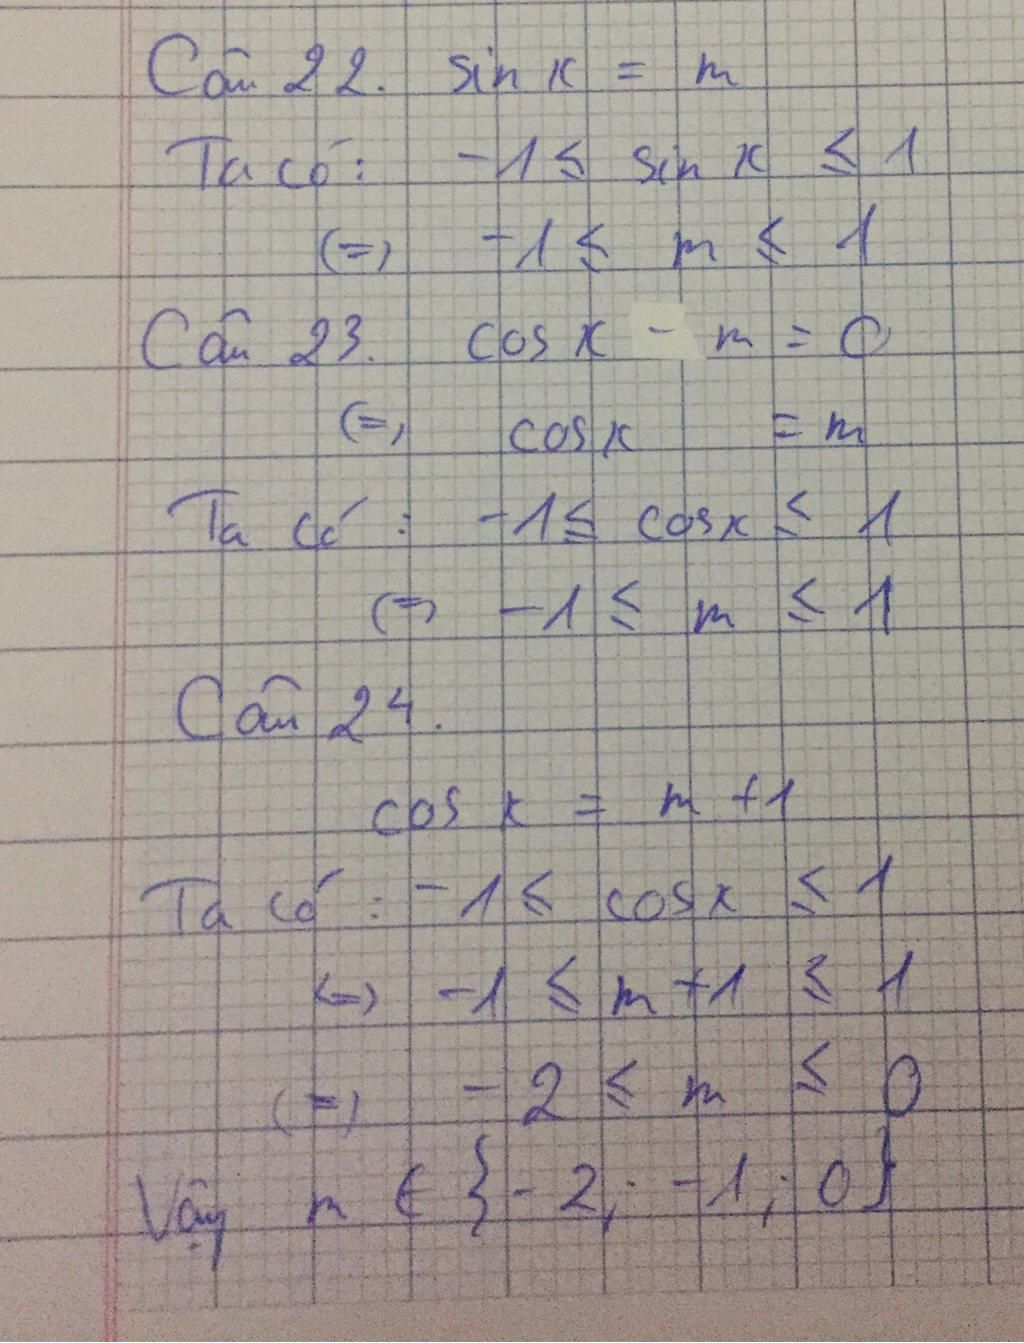 Câu 22. sin x = m
Ta có: -1 ≤ sin x ≤ 1
(=) -1 ≤ m ≤ 1
Câu 23. cos x - m = 0
(=) cos x = m
Ta có: -1 ≤ cos x ≤ 1
(=) -1 ≤ m ≤ 1
Câu 24.
cos x = m + 1
Ta có: -1 ≤ cos x ≤ 1
<=> -1 ≤ m + 1 ≤ 1
(=) -2 ≤ m ≤ 0
Vậy m ∈ {-2; -1; 0}